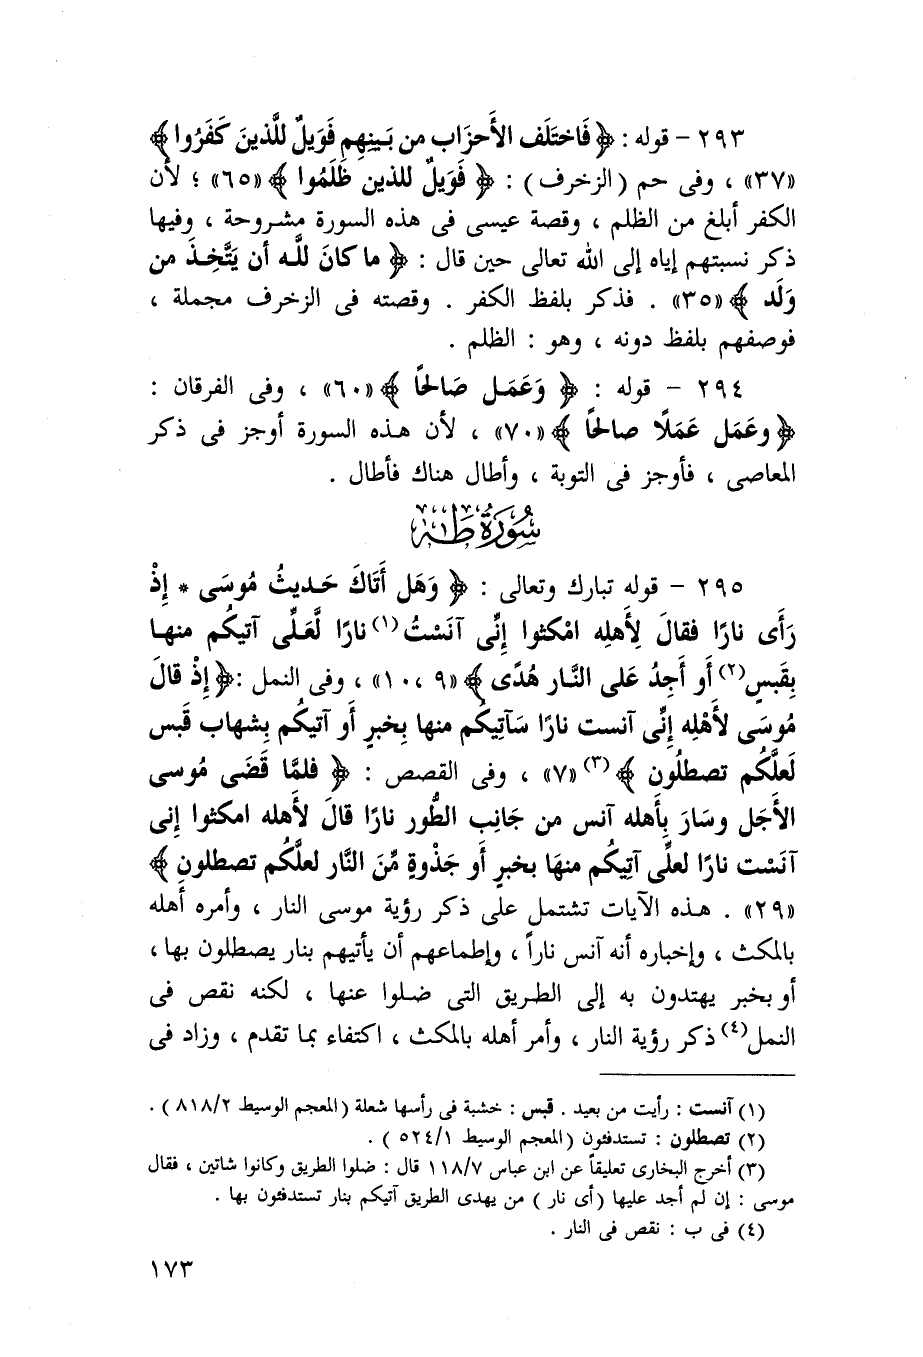 ٢٩٣ – قوله : ﴿ فَاختَلَف الأَحزَاب من بَينِهِم فَوَيلٌ للَّذينَ كَفَرُوا ﴾
«٣٧» ، وفى حم (الزخرف) : ﴿ فَوَيلٌ للذين ظَلَمُوا ﴾ «٦٥» ؛ لأن
الكفر أبلغ من الظلم ، وقصة عيسى فى هذه السورة مشروحة ، وفيها
ذكر نسبتهم إياه إلى الله تعالى حين قال : ﴿ ما كانَ للَّه أن يَتَّخِذَ من
وَلَد ﴾ «٣٥» . فذكر بلفظ الكفر . وقصته فى الزخرف مجملة ،
فوصفهم بلفظ دونه ، وهو : الظلم .
٢٩٤ – قوله : ﴿ وَعَمَل صَالحًا ﴾ «٦٠» ، وفى الفرقان :
﴿ وعَمَل عَمَلًا صالحًا ﴾ «٧٠» ، لأن هذه السورة أوجز فى ذكر
المعاصى ، فأوجز فى التوبة ، وأطال هناك فأطال .
سُورَةُ طٰهٰ
٢٩٥ – قوله تبارك وتعالى : ﴿ وَهَل أَتَاكَ حَديثُ مُوسَى * إِذْ
رَأَى نارًا فقالَ لِأَهلِه امْكثوا إِنِّى آنَسْتُ(١) نارًا لَّعَلِّى آتيكُم منها
بِقَبسٍ(٢) أَو أَجِدُ عَلى النَّار هُدًى ﴾ «٩ ، ١٠» ، وفى النمل : ﴿ إِذْ قالَ
مُوسَى لأَهْلِه إِنِّى آنست نارًا سَآتِيكُم منها بِخبرٍ أَو آتيكُم بِشهاب قَبس
لَعلَّكُم تصطلُون ﴾(٣) «٧» ، وفى القصص : ﴿ فلمَّا قَضَى مُوسى
الأَجَل وسَارَ بِأَهله آنس من جَانِب الطُّور نارًا قالَ لأَهله امكثوا إِنى
آنَسْت نارًا لعلِّى آتِيكُم منهَا بخبرٍ أَو جَذْوةٍ مِّنَ النَّار لعلَّكُم تصطلونِ ﴾
«٢٩» . هذه الآيات تشتمل على ذكر رؤية موسى النار ، وأمره أهله
بالمكث ، وإخباره أنه آنس ناراً ، وإطماعهم أن يأتيهم بنار يصطلون بها ،
أو بخبر يهتدون به إلى الطريق التى ضلوا عنها ، لكنه نقص فى
النمل(٤) ذكر رؤية النار ، وأمر أهله بالمكث ، اكتفاء بما تقدم ، وزاد فى
(١) آنست : رأيت من بعيد . قبس : خشبة فى رأسها شعلة (المعجم الوسيط ٨١٨/٢ ) .
(٢) تصطلون : تستدفئون (المعجم الوسيط ٥٢٤/١ ) .
(٣) أخرج البخارى تعليقاً عن ابن عباس ١١٨/٧ قال : ضلوا الطريق وكانوا شاتين ، فقال
موسى : إن لم أجد عليها (أى نار ) من يهدى الطريق آتيكم بنار تستدفئون بها .
(٤) فى ب : نقص فى النار .
١٧٣